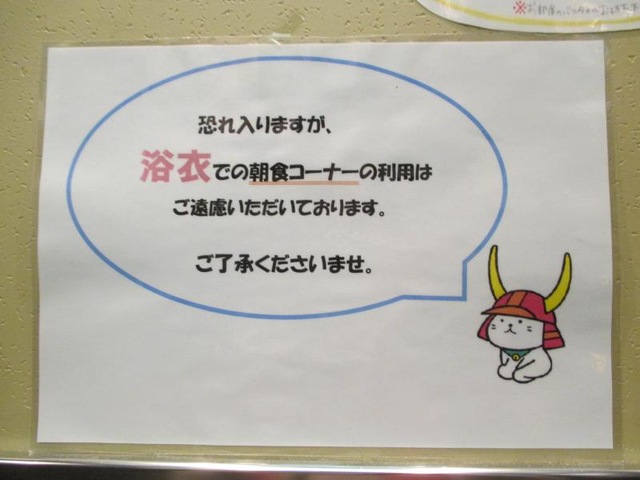 ※お部屋の
恐れ入りますが、
浴衣での朝食コーナーの利用は
ご遠慮いただいております。
ご了承くださいませ。